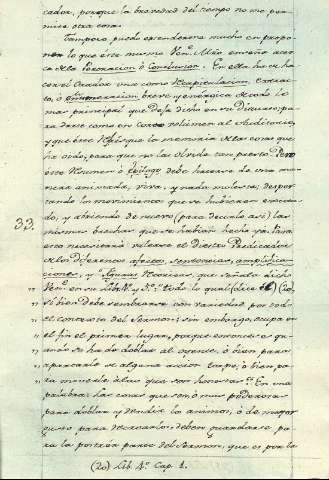 cador, porque la brevedad del tiempo no me per-
mite otra cosa.
Tampoco puedo extenderme mucho en propo-
ner lo que este mismo Ven. Mtro enseña acer-
ca de la Peroracion, ó Conclusion. En ella ha de ha-
cer el Orador una como Recapitulacion, extrac-
to, ó Enumeracion breve y enérgica de todo lo
mas principal que deja dicho en su Discurso, pa-
ra darle como en corto volumen al Auditorio,
y que éste en la memoria de las cosas que
ha oido, para que no las olvide tan presto. Pero
este Resumen ó Epílogo debe hacerse de una ma-
nera animada, viva, y nada molesta; desper-
tando los movimientos que se hubieren excita-
do, y abriendo de nuevo (para decirlo asi) las
33. mismas brechas que se habian hecho ya. Para
esto necesitará valerse el Diestro Predicador
de los diferentes afectos, sentencias, amplifica-
ciones, y figuras Retóricas, que señala dicho
Ven. en su Lib. Todo lo qual (dice él) (20)
„ si bien debe sembrarse con variedad por todo
„ el contexto del Sermon; sin embargo, ocupa en
„ el fin el primer lugar, porque entonces es qu-
„ ando se ha de doblar al oyente, ó bien para
„ apartarle de alguna accion torpe, ó bien pa-
„ ra moverle á las que son honestas. En una
„ palabra: las cosas que son mas poderosas
„ para doblar y rendir los animos, ó de mayor
„ gusto para recrearlos, deben guardarse pa-
„ ra la postrera parte del Sermon, que es por la
(20) Lib. 4.º Cap. 1.